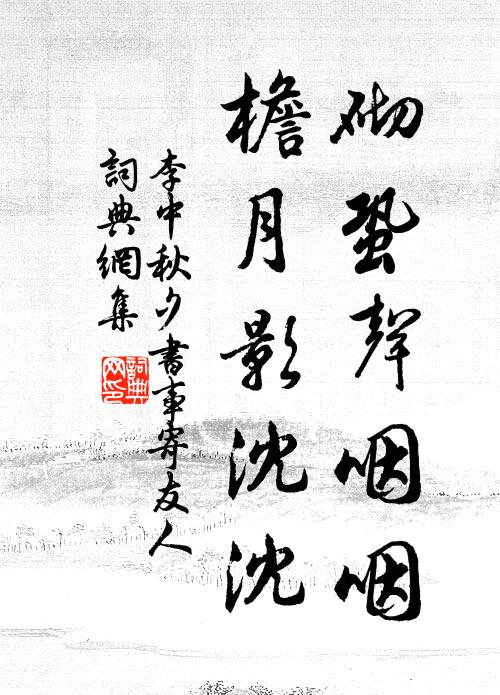 砌蛩聲咽咽
檐月影沈沈
李中秋夕書事寄友人
詞典網集
詞典
网印